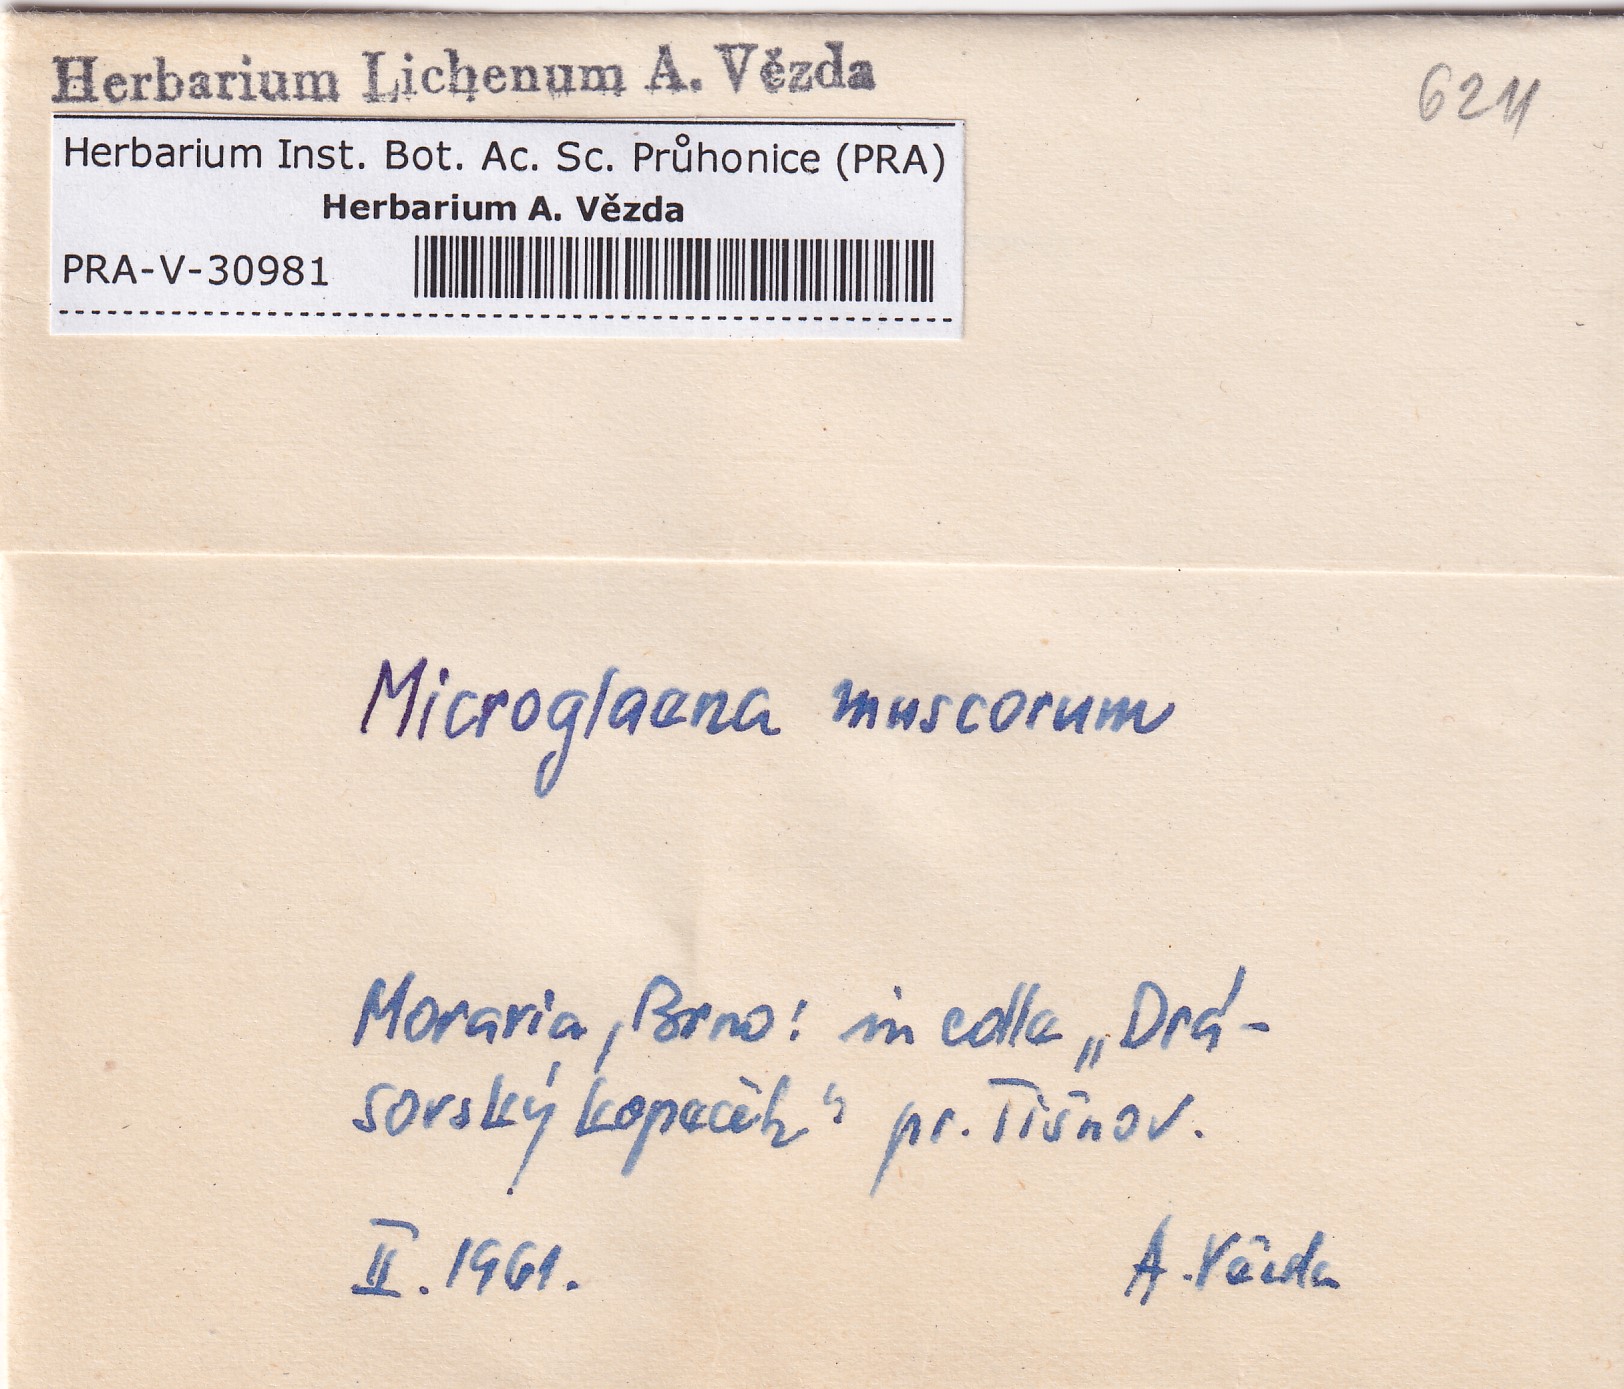 Herbarium Lichenum A. Vězda
6211
Herbarium Inst. Bot. Ac. Sc. Průhonice (PRA)
Herbarium A. Vězda
PRA-V-30981
Microglaena muscorum
Moravia, Brno: in colle „Drá-
sovský kopeček“ pr. Tišnov.
II. 1961.
A. Vězda